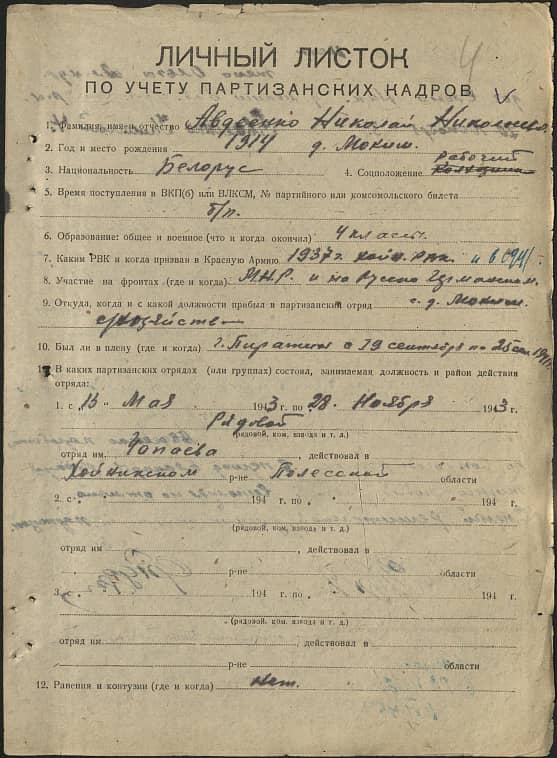 ЛИЧНЫЙ ЛИСТОК
ПО УЧЕТУ ПАРТИЗАНСКИХ КАДРОВ
1. Фамилия, имя и отчество Авдеенко Николай
2. Год и место рождения 1914 д. Мокиш.
рабочий
3. Национальность Белорус 4. Соцположение
5. Время поступления в ВКП(б) или ВЛКСМ, № партийного или комсомольского билета
б/п.
6. Образование: общее и военное (что и когда окончил) 4 класса.
7. Каким РВК и когда призван в Красную Армию 1937 г. и в 1941
8. Участие на фронтах (где и когда) МНР. и на Русско Германском.
9. Откуда, когда и с какой должности прибыл в партизанский отряд с. д. Мокиш.
10. Был ли в плену (где и когда) г. Пирятин с 19 сентября по
11. В каких партизанских отрядах (или группах) состоял, занимаемая должность и район действия
отряда:
1. с 15 " Мая 1943 г. по 28. Ноября 1943 г.
Рядовой
(рядовой, ком. взвода и т. д.)
отряд им. Чапаева, действовал в
Хойникском р-не Полесской области
2. с 194 г. по 194 г.
(рядовой, ком. взвода и т. д.)
отряд им. , действовал в
р-не области
3. с 194 г. по 194 г.
(рядовой, ком. взвода и т. д.)
отряд им. действовал в
р-не области
12. Ранения и контузии (где и когда) нет.